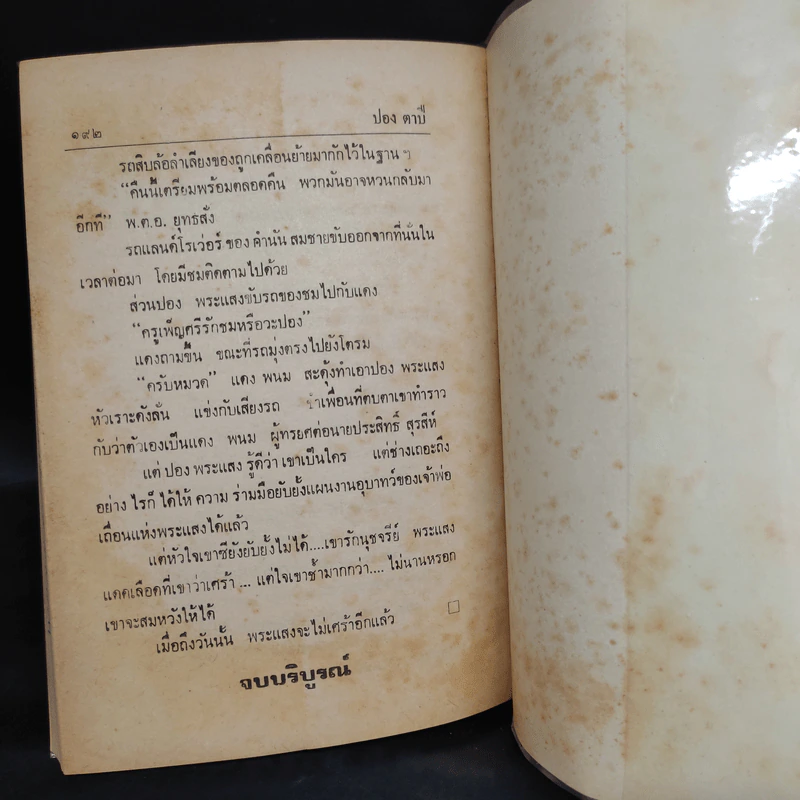 ๑๙๒
ปอง ตาปี
รถสิบล้อลำเลียงของถูกเคลื่อนย้ายมากักไว้ในฐาน ๆ
“คืนนี้เตรียมพร้อมตลอดคืน พวกมันอาจหวนกลับมา
อีกที” พ.ต.อ. ยุทธสั่ง
รถแลนด์โรเว่อร์ ของ คำนัน สมชายขับออกจากที่นั่นใน
เวลาต่อมา โดยมีชมติดตามไปด้วย
ส่วนปอง พระแสงขับรถของชมไปกับแดง
“ครูเพ็ญศรีรักชมหรือวะปอง”
แดงถามขึ้น ขณะที่รถมุ่งตรงไปยังโตรม
“ครับหมวด” แดง พนม สะดุ้งทำเอาปอง พระแสง
หัวเราะดังลั่น แข่งกับเสียงรถ เพื่อนที่ตบตาเขาทำราว
กับว่าตัวเองเป็นแดง พนม ผู้ทรยศต่อนายประสิทธิ์ สุรสีห์
แต่ ปอง พระแสง รู้ดีว่า เขาเป็นใคร แต่ช่างเถอะถึง
อย่าง ไรก็ ได้ให้ ความ ร่วมมือยับยั้งแผนงานอุบาทว์ของเจ้าพ่อ
เถื่อนแห่งพระแสงได้แล้ว
แต่หัวใจเขาซียังยับยั้งไม่ได้....เขารักนุชจรีย์ พระแสง
แดดเลือดที่เขาว่าเศร้า ... แต่ใจเขาช้ำมากกว่า.... ไม่นานหรอก
เขาจะสมหวังให้ได้
เมื่อถึงวันนั้น พระแสงจะไม่เศร้าอีกแล้ว
จบบริบูรณ์